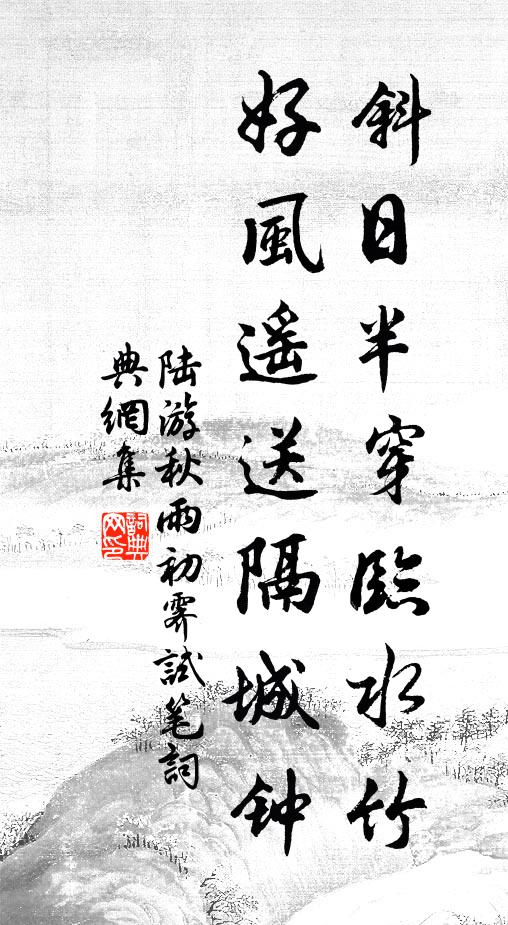 斜日半穿臨水竹
好風遥送隔城钟
陆游秋雨初霁試笔詞
典網集
詞典网印